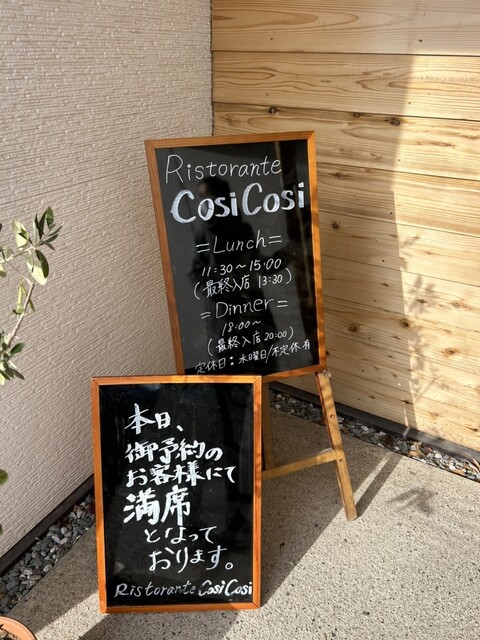 Ristorante
Cosi Cosi
=Lunch=
11:30～15:00
(最終入店 13:30)
=Dinner=
18:00～
(最終入店 20:00)
定休日：水曜日/不定休有
本日、
御予約の
お客様にて
満席
となって
おります。
Ristorante Cosi Cosi